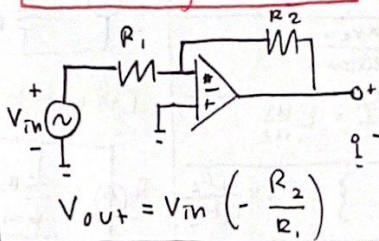 R₁
R₂
+
Vin
-
-
+
+
-
Vout = Vin (- R₂/R₁)